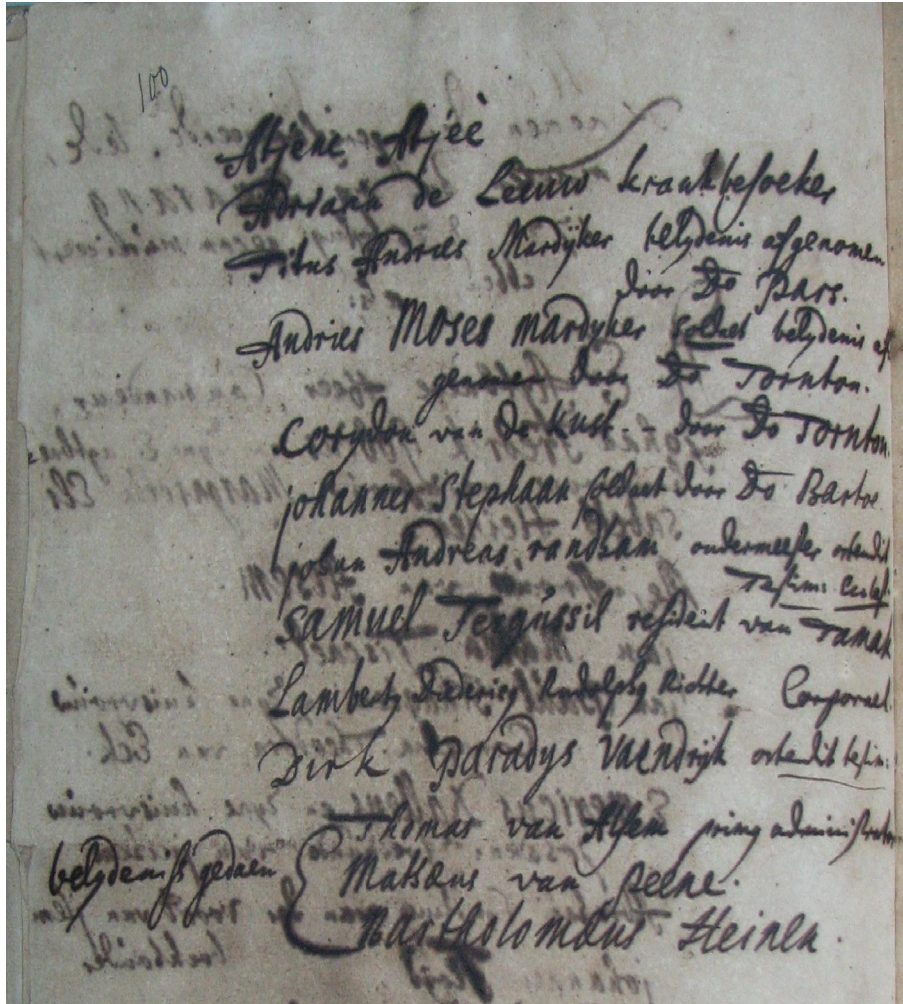 100
Atjene Atjeé
Adriaan de Leeuw krankbesoeker
Titus Andries Mardijker belydenis afgenomen
door Do Pars.
Andries Moses mardyker soldaet belydenis af
genomen door Do Tornton.
Corydon van de Kust - - door Do Tornton.
johannes Stephaan soldaet door Do
johan Andreas randham ondermeester ostendit
Testim:
Samuel Fergússil resident van
Lambertg Diedericg Rudolphg Richter Corporael.
Dirk Paradys Vaendrijk ostendit testim:
Thomas van Alsem primg administrator
belydeniss gedaen Matheus van peene.
Bartholomeus Heinen.